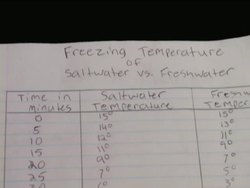 Freezing Temperature
of
Saltwater vs. Freshwater
Time in minutes Saltwater Temperature Freshw Temper
0 15° 15°
5 14° 13°
10 12° 11°
15 11° 9°
20 9° 7°
25 7° 5°